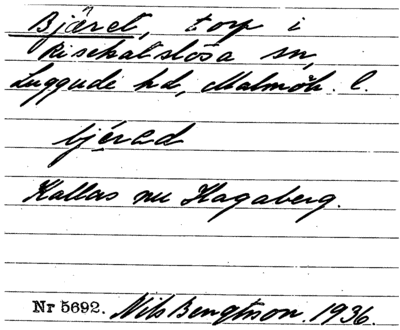 Bjäret, torp i
Risekatslösa sn,
Luggude hd, Malmöh. l.
bjérəd
Kallas nu Hagaberg.
Nr 5692. Nils Bengtson. 1936.